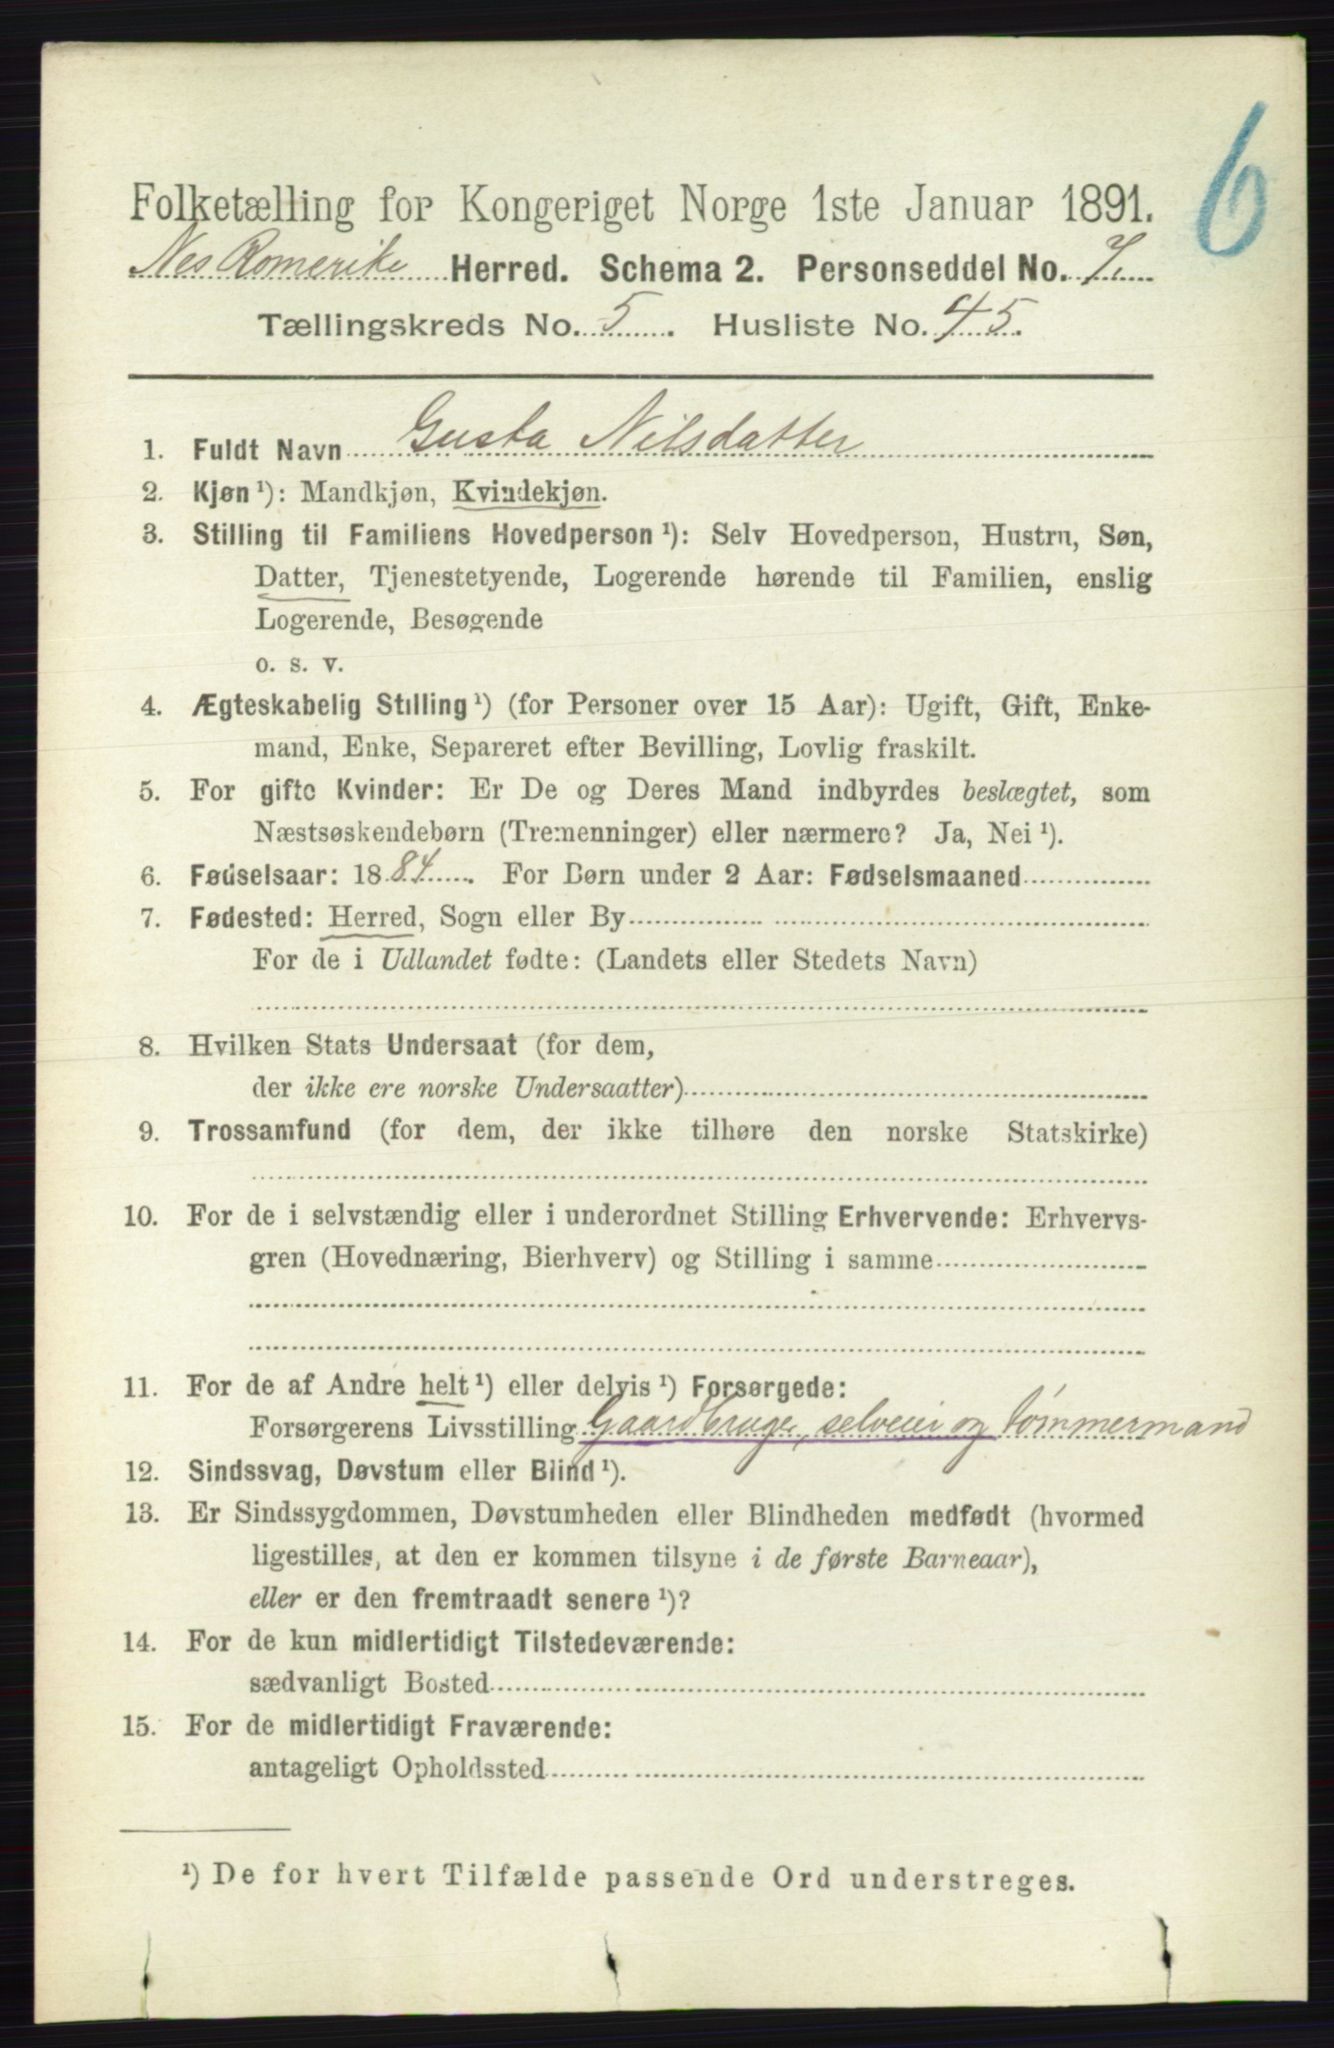 6
Folketælling for Kongeriget Norge 1ste Januar 1891.
Nes Romerike Herred. Schema 2. Personseddel No. 7.
Tællingskreds No. 5. Husliste No. 45.
1. Fuldt Navn Gusta Nilsdatter
2. Kjøn¹): Mandkjøn, Kvindekjøn.
3. Stilling til Familiens Hovedperson¹): Selv Hovedperson, Hustru, Søn,
Datter, Tjenestetyende, Logerende hørende til Familien, enslig
Logerende, Besøgende
o. s. v.
4. Ægteskabelig Stilling¹) (for Personer over 15 Aar): Ugift, Gift, Enke-
mand, Enke, Separeret efter Bevilling, Lovlig fraskilt.
5. For gifte Kvinder: Er De og Deres Mand indbyrdes beslægtet, som
Næstsøskendebørn (Tremenninger) eller nærmere? Ja, Nei¹).
6. Fødselsaar: 1884. For Børn under 2 Aar: Fødselsmaaned
7. Fødested: Herred, Sogn eller By
For de i Udlandet fødte: (Landets eller Stedets Navn)
8. Hvilken Stats Undersaat (for dem,
der ikke ere norske Undersaatter)
9. Trossamfund (for dem, der ikke tilhøre den norske Statskirke)
10. For de i selvstændig eller i underordnet Stilling Erhvervende: Erhvervs-
gren (Hovednæring, Bierhverv) og Stilling i samme
11. For de af Andre helt¹) eller delvis¹) Forsørgede:
Forsørgerens Livsstilling Gaardbruger, selveier og tømmermand
12. Sindssvag, Døvstum eller Blind¹).
13. Er Sindssygdommen, Døvstumheden eller Blindheden medfødt (hvormed
ligestilles, at den er kommen tilsyne i de første Barneaar),
eller er den fremtraadt senere¹)?
14. For de kun midlertidigt Tilstedeværende:
sædvanligt Bosted
15. For de midlertidigt Fraværende:
antageligt Opholdssted
¹) De for hvert Tilfælde passende Ord understreges.